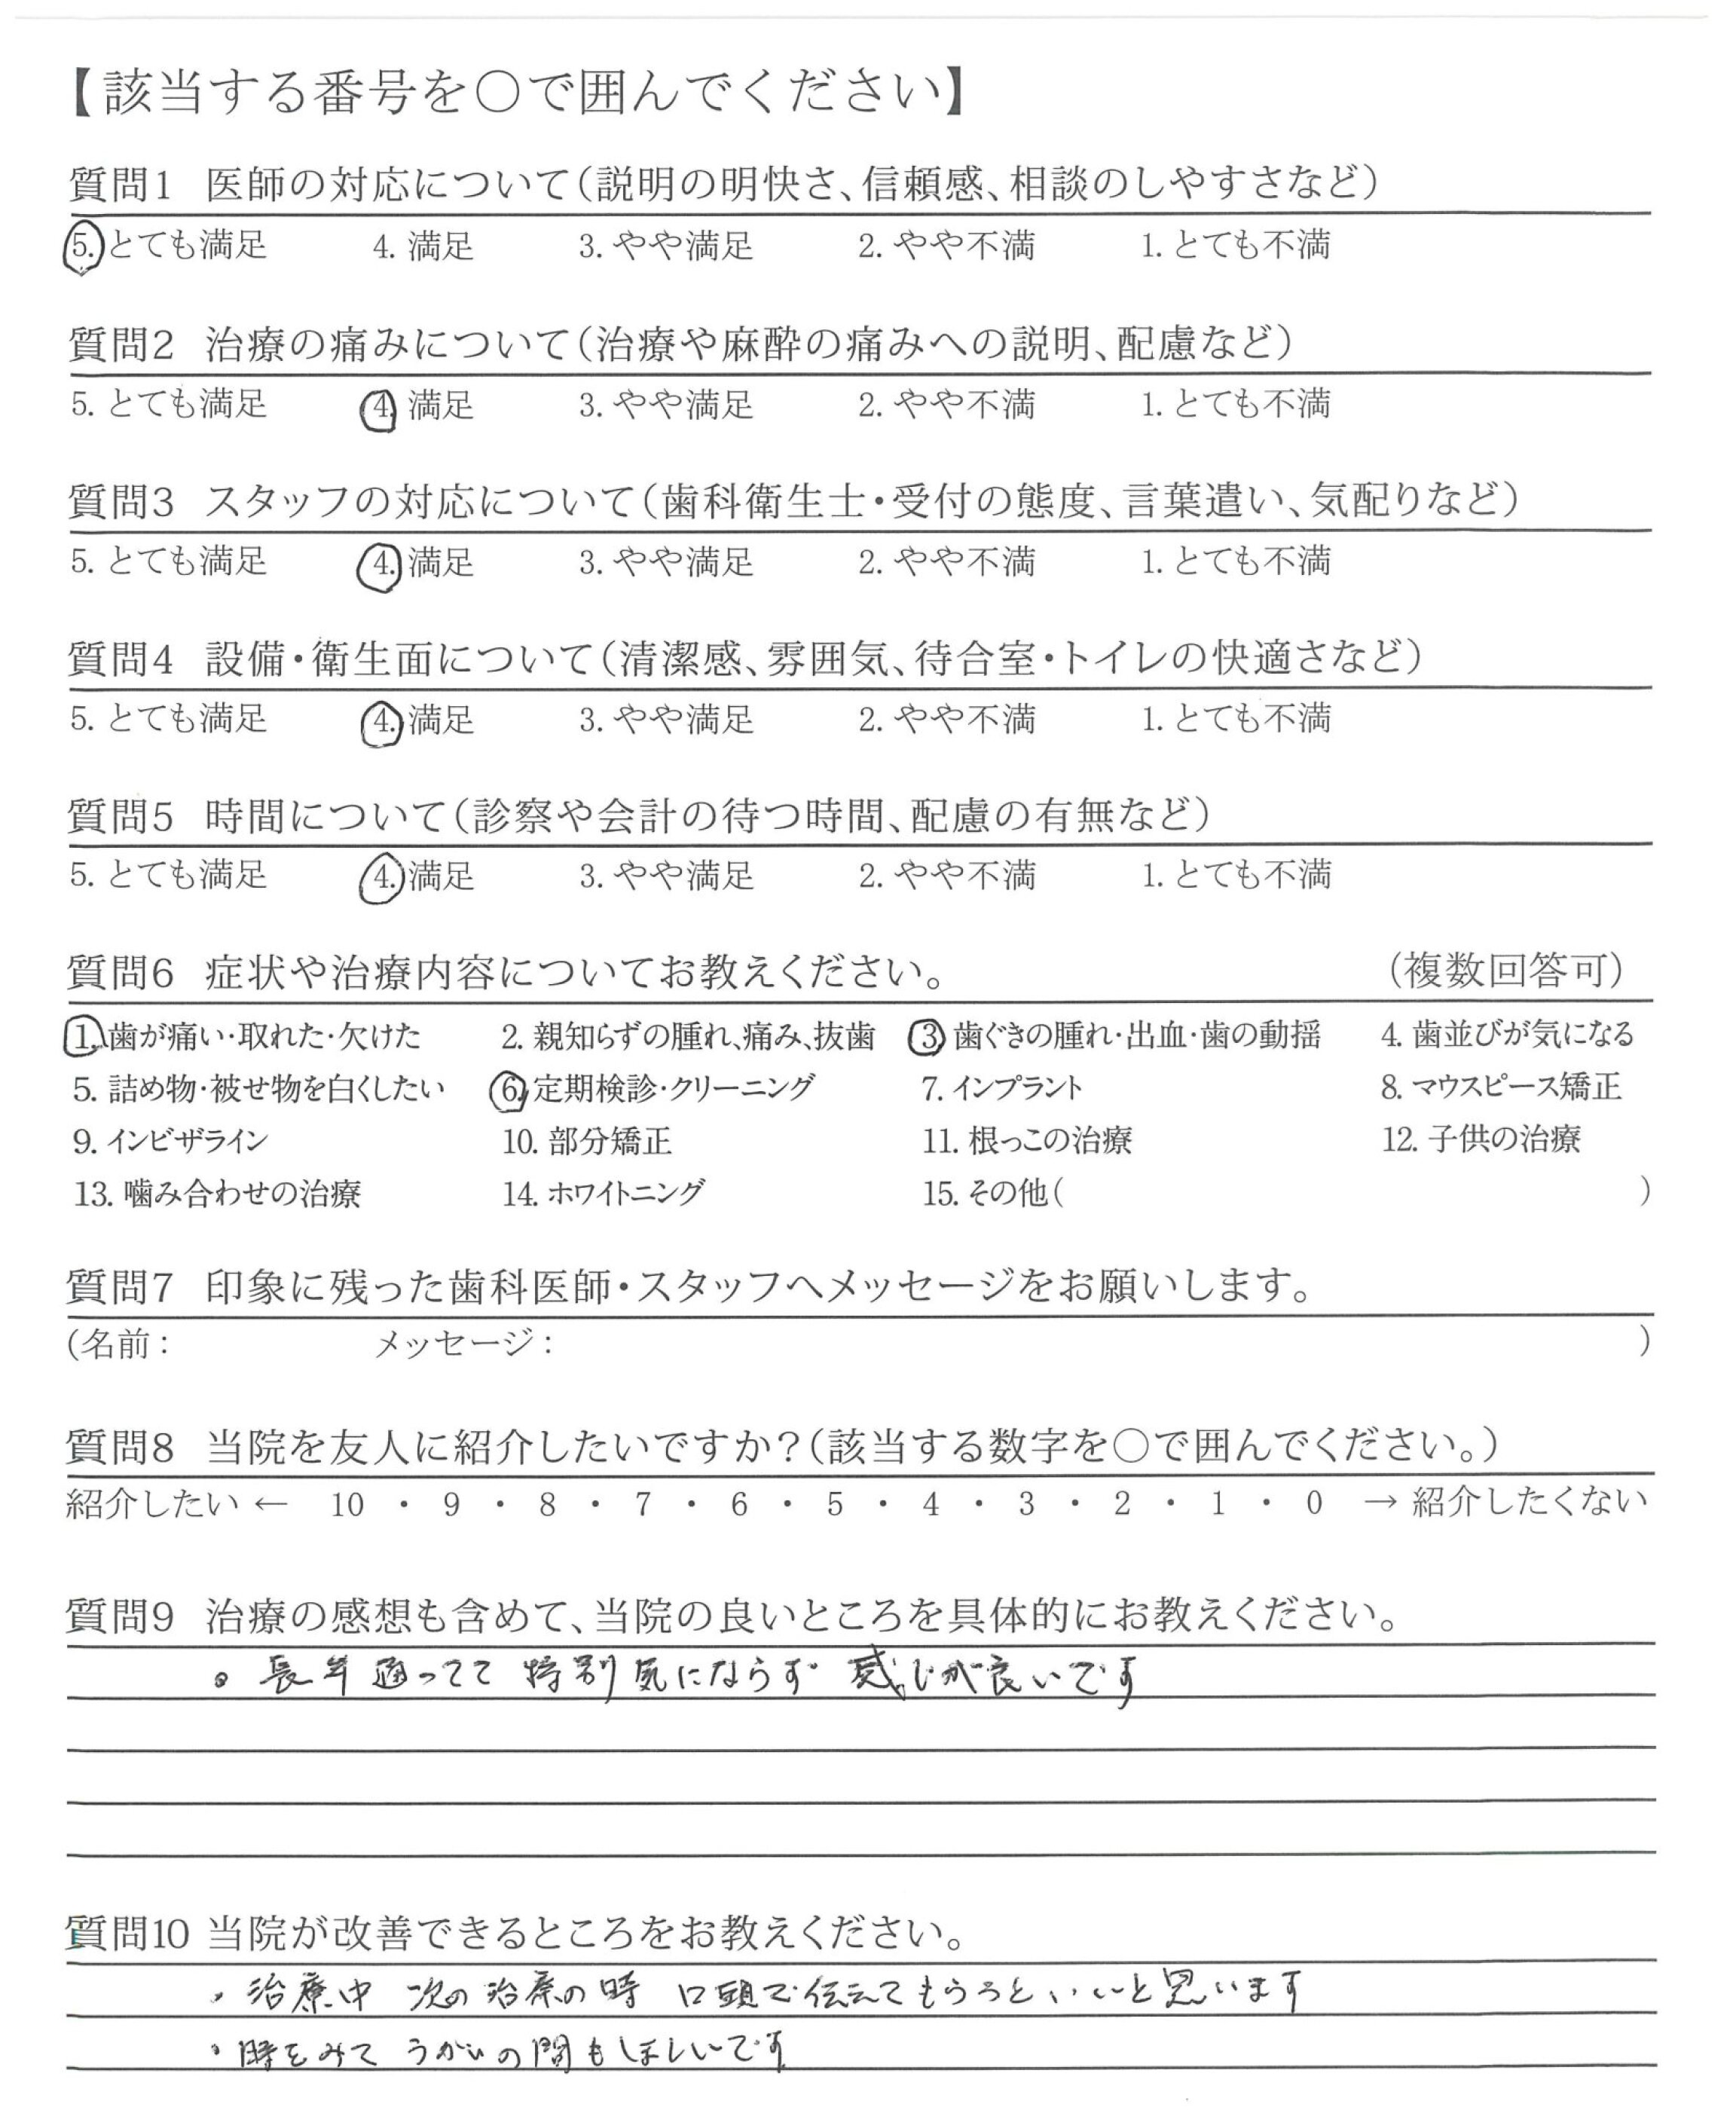 【該当する番号を○で囲んでください】
質問1 医師の対応について(説明の明快さ、信頼感、相談のしやすさなど)
5. とても満足 4. 満足 3. やや満足 2. やや不満 1. とても不満
質問2 治療の痛みについて(治療や麻酔の痛みへの説明、配慮など)
5. とても満足 4. 満足 3. やや満足 2. やや不満 1. とても不満
質問3 スタッフの対応について(歯科衛生士・受付の態度、言葉遣い、気配りなど)
5. とても満足 4. 満足 3. やや満足 2. やや不満 1. とても不満
質問4 設備・衛生面について(清潔感、雰囲気、待合室・トイレの快適さなど)
5. とても満足 4. 満足 3. やや満足 2. やや不満 1. とても不満
質問5 時間について(診察や会計の待つ時間、配慮の有無など)
5. とても満足 4. 満足 3. やや満足 2. やや不満 1. とても不満
質問6 症状や治療内容についてお教えください。 (複数回答可)
1. 歯が痛い・取れた・欠けた 2. 親知らずの腫れ、痛み、抜歯 3. 歯ぐきの腫れ・出血・歯の動揺 4. 歯並びが気になる
5. 詰め物・被せ物を白くしたい 6. 定期検診・クリーニング 7. インプラント 8. マウスピース矯正
9. インビザライン 10. 部分矯正 11. 根っこの治療 12. 子供の治療
13. 噛み合わせの治療 14. ホワイトニング 15. その他( )
質問7 印象に残った歯科医師・スタッフへメッセージをお願いします。
(名前: メッセージ: )
質問8 当院を友人に紹介したいですか?(該当する数字を○で囲んでください。)
紹介したい ← 10 ・ 9 ・ 8 ・ 7 ・ 6 ・ 5 ・ 4 ・ 3 ・ 2 ・ 1 ・ 0 → 紹介したくない
質問9 治療の感想も含めて、当院の良いところを具体的にお教えください。
。長年通ってて 特別気にならず 感じが良いです
質問10 当院が改善できるところをお教えください。
・治療中 次の治療の時 口頭で伝えてもらうといいと思います
・時をみて うがいの間もほしいです